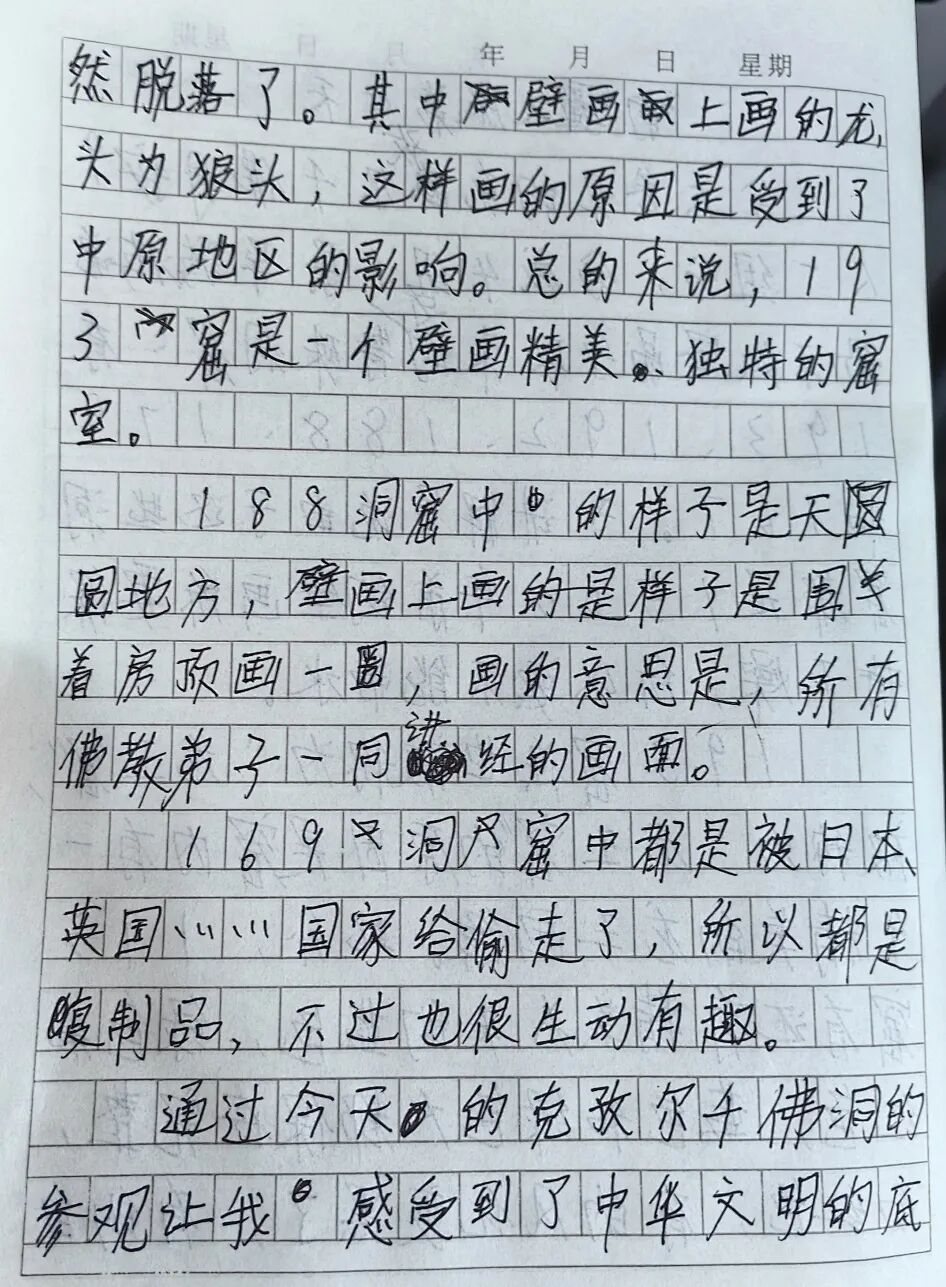 年 月 日 星期
然脱落了。其中壁画上画的龙
头为狼头，这样画的原因是受到了
中原地区的影响。总的来说，19
3窟是一个壁画精美、独特的窟
室。
188洞窟中的样子是天圆
圆地方，壁画上画的是样子是围
着房顶画一圈，画的意思是，所有
佛教弟子一同讲经的画面。
169洞窟中都是被日本、
英国……国家给偷走了，所以都是
腹制品，不过也很生动有趣。
通过今天的克孜尔千佛洞的
参观让我感受到了中华文明的底